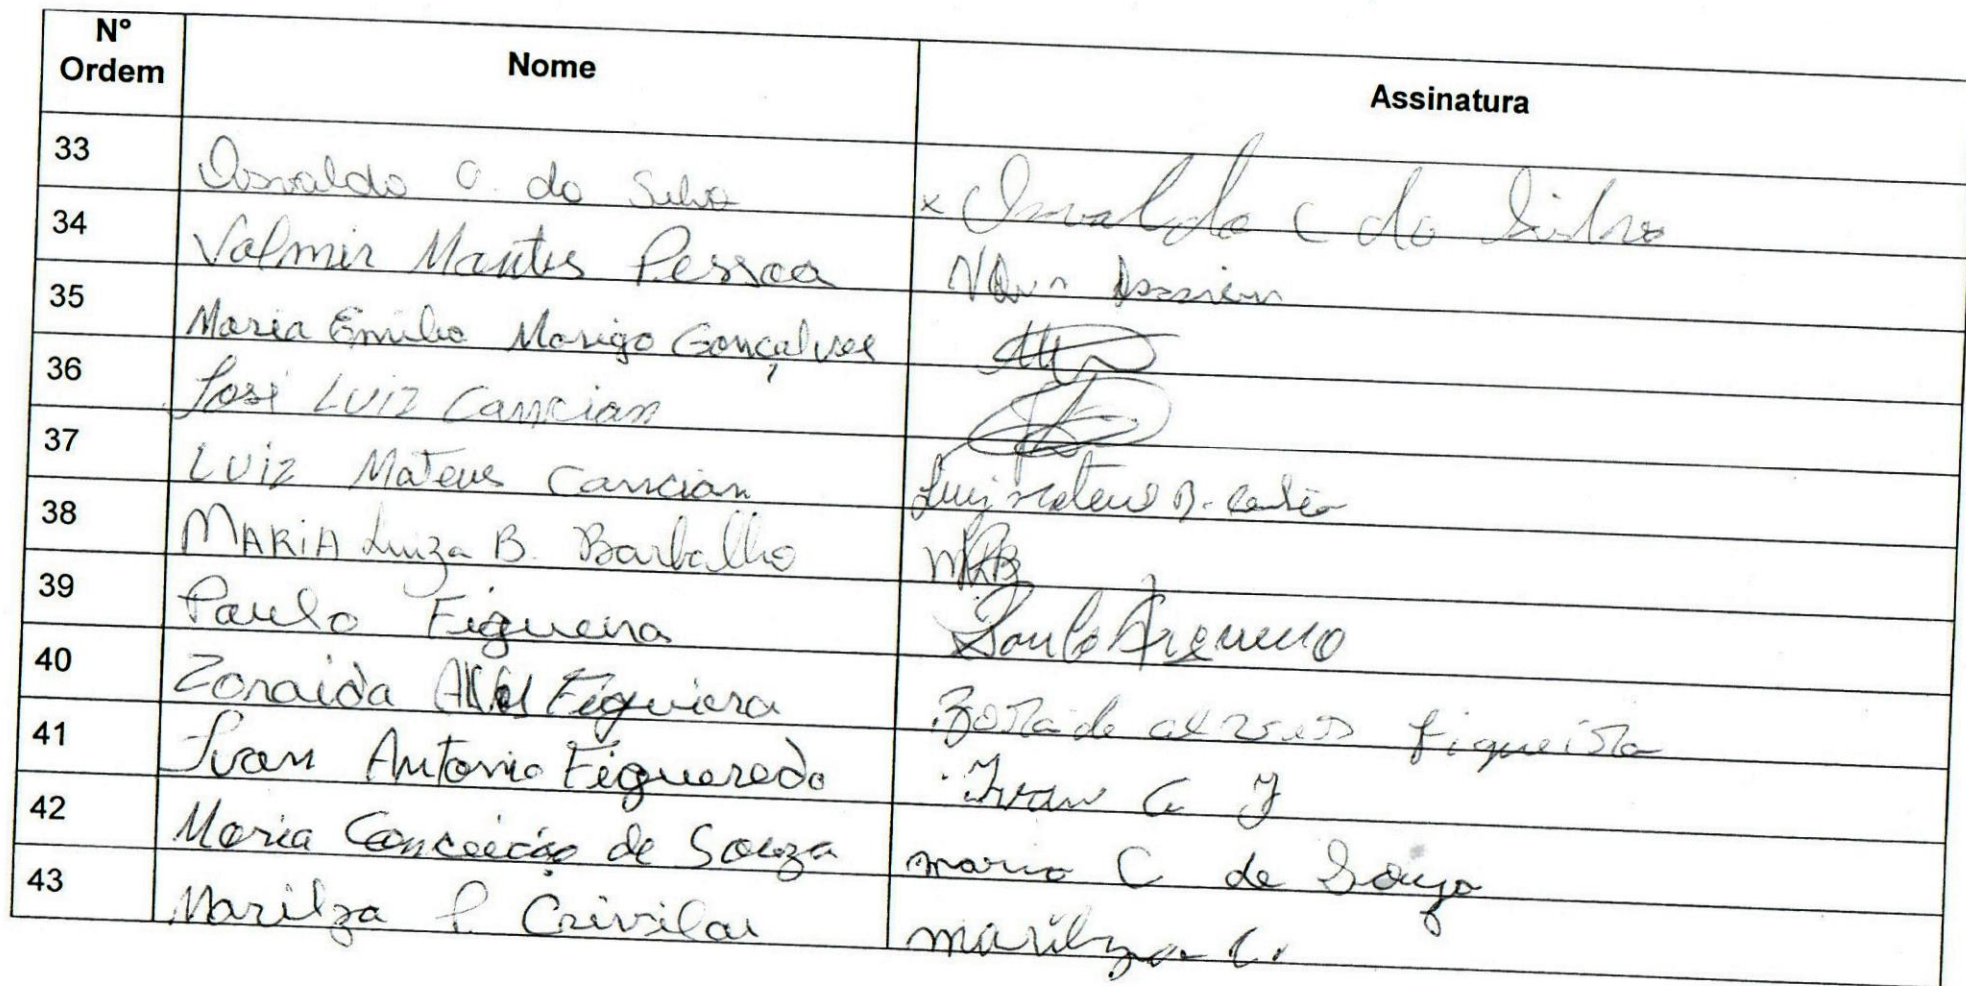 N° Ordem Nome Assinatura
33 Osvaldo C. da Silva x Osvaldo C da Silva
34 Valmir Mantes Pessoa
35 Maria Emilia Marigo Gonçalves
36 José Luiz Cancian
37 Luiz Mateus Cancian Luiz Mateus B.
38 MARIA Luiza B. Barbalho MLB
39 Paulo Figueira Paulo
40 Zoraida Alves Figuiera figueira
41 Ivan Antonio Figueredo Ivan
42 Maria Conceição de Souza maria C de Souza
43 Marilza P. Crivilar marilza C.